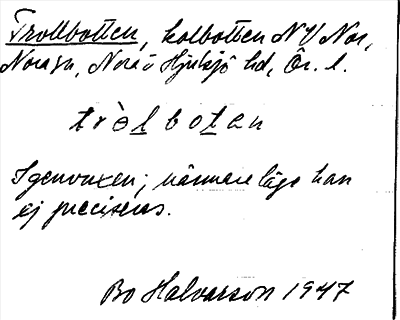 Trollbotten, kolbotten NV Nor,
Nora sn, Nora o Hjulsjö hd, Ör. l.
tròlbotan
Igenvuxen; närmare läge kan
ej preciseras.
Bo Halvarson 1947